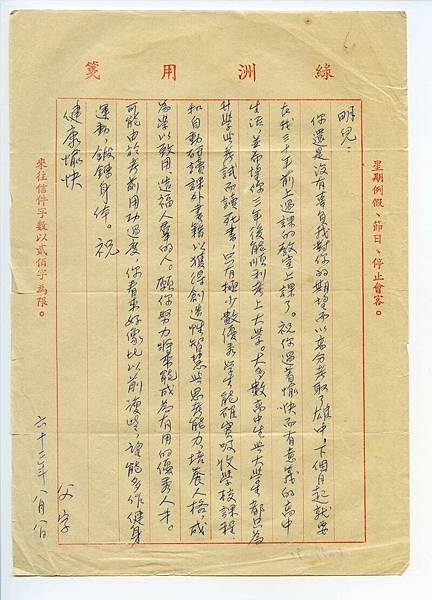 綠洲用箋
星期例假、節日、停止會客。
明兒：
你還是沒有辜負我對你的期望而以高分考取了雄中，下個月起就要
在我三十年前上過課的教室上課了。祝你過著愉快而有意義的高中
生活，並希望你三年後能順利考上大學。大多數高中生與大學生都只為
升學與考試而讀死書，只有極少數優秀學生能確實吸收學校課程
和自動研讀課外書籍以獲得創造性智慧與思考能力，培養人格，成
為學以致用、造福人羣的人。願你努力將來能成為有用的優秀人才。
可能由於考前用功過度，你看來好像比以前瘦些，望能多作健身
運動，鍛鍊身体。祝
健康愉快
父字
六十二年八月一日
來往信件字數以貳佰字為限。